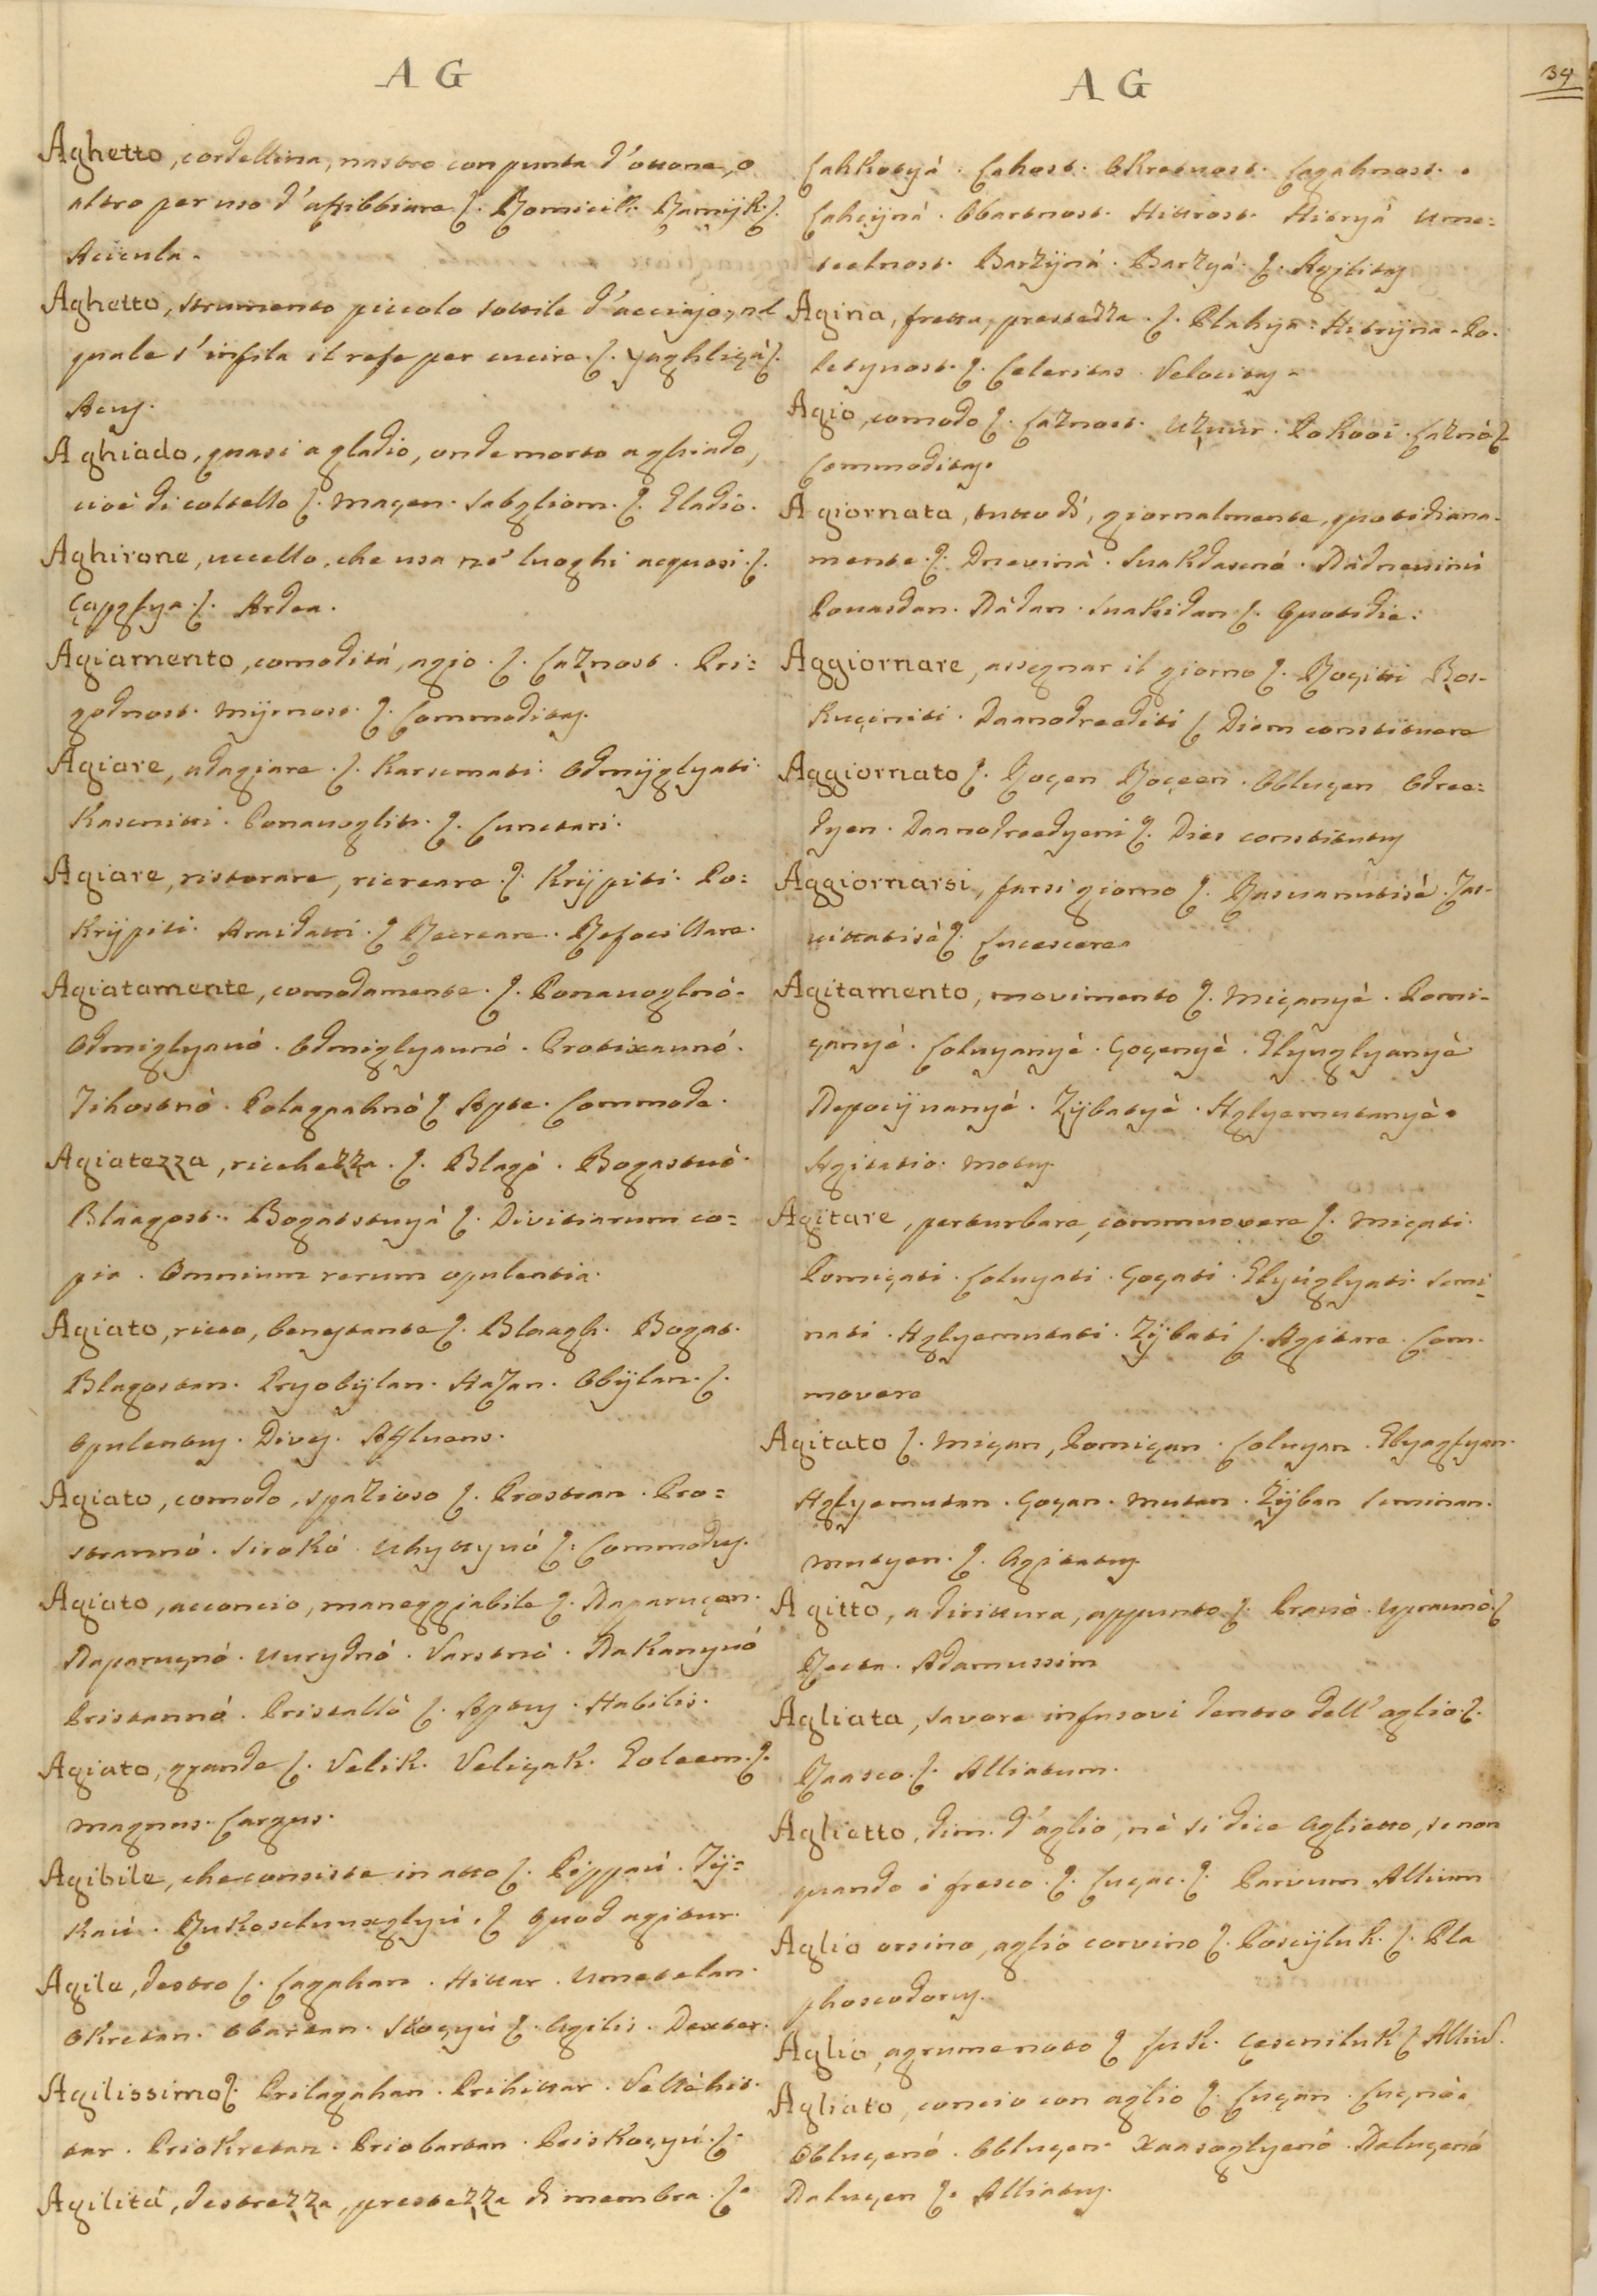 A G
Aghetto, cordellina, nastro con punta d'ottone, o
altro per uso d'affibbiare ſ. Romicill. Ramijk. ſ.
Acicula.
Aghetto, strumento piccolo sottile d'acciajo, nel
quale s'infila il refe per cucire. ſ. yaghliçà ſ.
Acuſ.
Aghiado, quasi a gladio, onde morto aghiado,
cioè di coltello ſ. Maçen. Sabgliom. ſ. Gladio.
Aghirone, uccello, che usa ne' luoghi acquosi. ſ.
Çapglya. ſ. Ardea.
Agiamento, comodità, agio. ſ. Laznost. Pri=
godnost. Mijrnost. ſ. Commoditaſ.
Agiare, adagiare. ſ. Karsmati. Odmijglyati.
Kascniti. Ponauogliti. ſ. Cunctari.
Agiare, ristorare, ricreare. ſ. Krijpiti. Po=
krijpiti. ſ. Recreare. Refocillare.
Agiatamente, comodamente. ſ. Ponauoglnò.
Odmiglyauò. Odmiglyaunò. Protixaunò.
Tihostnò. Polagpahnò ſ. Apte. Commode.
Agiatezza, richezza. ſ. Blagò. Bogastuò.
Blaagost. Bogatstuyá ſ. Divitiarum co=
pia. Omnium rerum opulentia.
Agiato, ricco, benestante ſ. Blaagh. Bogat.
Blagostan. Pryobijlan. Hazan. Obijlan. ſ.
Opulentuſ. Diveſ. Affluens.
Agiato, comodo, spazioso ſ. Prostran. Pro=
strannò. Sirokò. Uhyttyuó ſ. Commoduſ.
Agiato, acconcio, maneggiabile ſ. Naparuçan.
Naparuçnò. Uurydnò. Varstnò. Nakanyuò
Pristannò. Pristallò ſ. Aptuſ. Habilis.
Agiato, grande ſ. Velik. Veliçak. Goleem. ſ.
Magnus. Largus.
Agibile, che consiste in atto ſ. Tij=
kaú. ſ. Quod agitur.
Agile, destro ſ. Lagahan. Hittar. Umetelan.
Okretan. Obartan. Skoçyú ſ. Agilis. Dexter.
Agilissimo ſ. Prilagahan. Prihittar. Vellèhit=
tar. Priokretan. Priobartan. Priskoçyú. ſ.
Agilità, destrezza, prestezza di membra. ſ.
A G
39
Lahkotyá. Lahost. Okretnost. Lagahnost.
Lahcijná. Obartnost. Hittrost. Hitryá Ume=
teelnost. Barzijná. Barzyá. ſ. Agilitaſ
Agina, fretta, prestezza. ſ. Plahya. Hitrijna. Po=
letynost. ſ. Celeritas. Velocitaſ.
Agio, comodo ſ. Laznost. Uzmir. Pokooi. Laznò ſ.
Commoditaſ.
A giornata, tutto dì, giornalmente, quotidiana=
mente. ſ. Dnevinà. Suakdascnó. Nàdneuinú
Pouasdan. Nàdan. Suakidan ſ. Quotidie.
Aggiornare, assegnar il giorno ſ. Roçitti Ros=
kuçiniti. Daanodreediti ſ. Diem constituere
Aggiornato ſ. Roçen Roçeen. Obluçen Odree=
dyen. Daanodreedyeni ſ. Dies constitutuſ
Aggiornarsi, farsi giorno ſ. Rasuanutisè. Zas=
uittatisè ſ. Lucescere.
Agitamento, movimento ſ. Miçanyè. Pomi=
çanyè. Coluyanyè. Goçenyè. Glyuglyanyè
Nepocijuanyé. Zijbatyè. Uzlyemutanyè.
Agitatio. Motuſ.
Agitare, perturbare, commuovere ſ. Miçati.
Pomiçati. Coluyati. Goçati. Glyúglyati. Semi=
nati. Uzlyemutati. Zijbati ſ. Agitare. Com=
movere
Agitato ſ. Miçan, Pomiçan. Coluyan. Glyuglyan.
Uzlyemutan. Goçan. Mutan. Zijban Seminan.
Mutyen. ſ. Agitatuſ.
Agitto, a dirittura, appunto ſ. Prauò. Upraunò. ſ.
Recta. Adamussim
Agliata, savore infusovi dentro dell'aglio ſ.
Raasco. ſ. Alliatum.
Aglietto, dim. d'aglio, nè si dice Aglietto, se non
quando è fresco. ſ. Luçac. ſ. Parvum Allium
Aglio orsino, aglio corvino ſ. Poscijluk. ſ. Pla
phoscodoruſ.
Aglio, agrume noto ſ. Luk. Çesceniluk ſ. Alliuſ.
Agliato, concio con aglio ſ. Luçan. Luçnò.
Obluçenó. Obluçen. Xaasoglyenò. Naluçenó
Naluçen ſ. Alliatuſ.